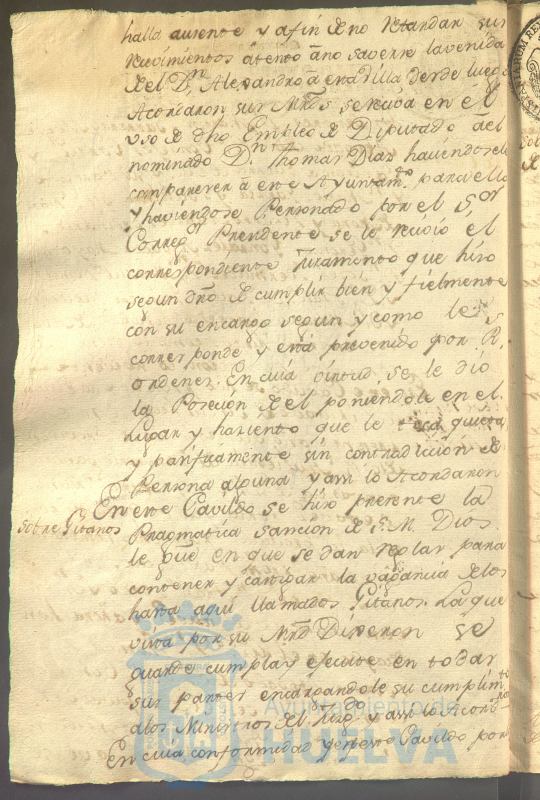 halla ausente y afin de no retardar sus
recivimientos atento a no saverse la venida
del Dn. Alexandro a esta Villa desde luego
Acordaron sus Mrds se reciva en el
uso de dho Empleo de Diputado ael
nominado Dn. Thomas Diaz haviendosele
comparever a este Ayuntamto. para ello
y haviendose Personado por el Sor
Corregor Presidente se le recivio el
correspondiente juramento que hizo
segun dro de cumplir bien y fielmente
con su encargo segun y como le
corresponde y está prevenido por Rs
ordenes. En cuia virtud, se le dio
la Posecion del poniendole en el
Lugar y haciento que le toca quieta
y pacificamente sin contradicion de
Persona alguna y assi lo Acordaron
Sobre Gitanos
En este Cavildo se hizo presente la
Pragmatica sancion de S.M. Dios
le gue en que se dan reglas para
contener y castigar la vagancia de los
hasta aqui llamados Gitanos. La que
vista por sus Mrds Dixeron se
guarde cumpla y ejecute en todas
sus partes encargandole su cumplimto
alos Ministros del Juzgdo y assi lo Acordaron
En cuia conformidad y Cavildo por
Ayuntamiento de
HUELVA